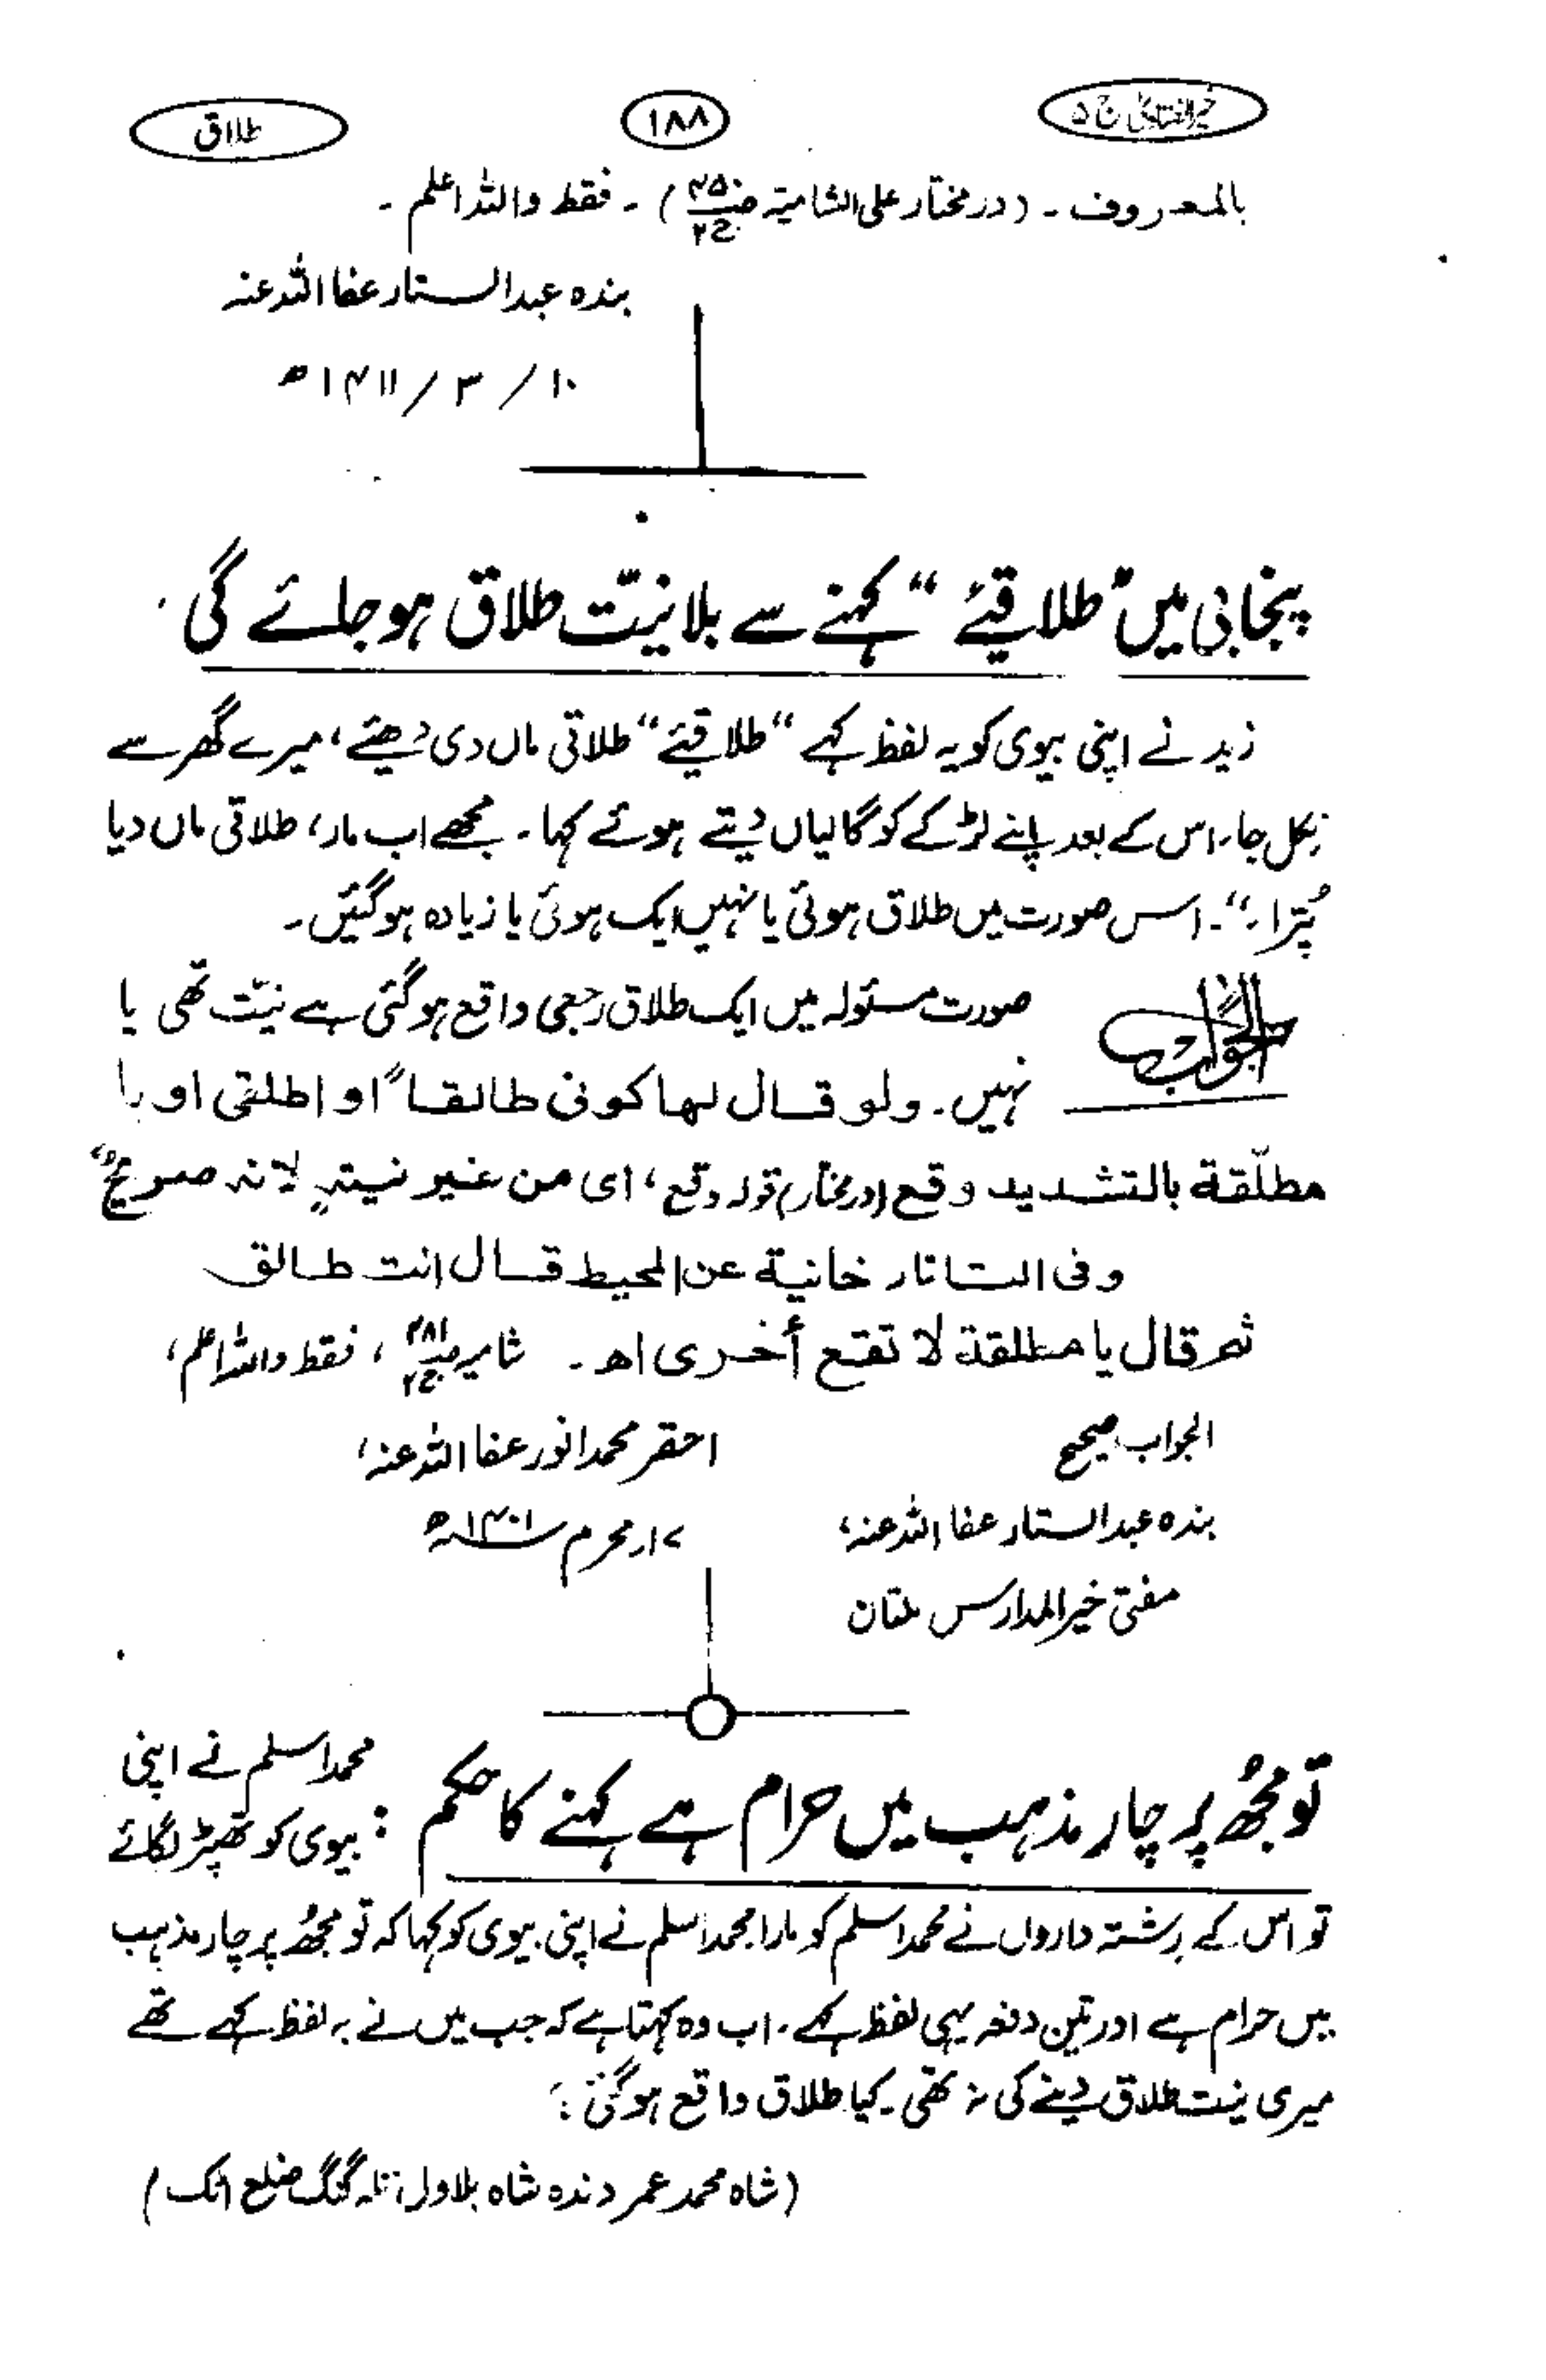 خیرالفتاویٰ ج ۵
۱۸۸
طلاق
بالمعروف ۔ (درمختار علی الشامیۃ ج۲) ۔ فقط واللہ اعلم ۔
بندہ عبدالستار عفا اللہ عنہ
۱۰ / ۳ / ۱۴۱۱ھ
پنجابی میں "طلاقیئے" کہنے سے بلا نیّت طلاق ہو جائے گی
زید نے اپنی بیوی کو یہ لفظ کہے "طلاقیئے" طلاقی ماں دی دھیئے، میرے گھر سے
نکل جا۔ اس کے بعد اپنے لڑکے کو گالیاں دیتے ہوئے کہا ۔ مجھے اب مار، طلاقی ماں دیا
پُترا ۔" ۔ اس صورت میں طلاق ہوئی یا نہیں ایک ہوئی یا زیادہ ہوگئیں ۔
الجواب
صورت مسئولہ میں ایک طلاق رجعی واقع ہوگئی ہے نیّت تھی یا
نہیں ۔ ولو قال لها کونی طالقاً او اطلقی او یا
مطلّقة بالتشدید وقع (درمختار) قولہ وقع، ای من غیر نیتہٍ لانہ صریحٌ"
وفی التاتار خانیة عن المحیط قال انت طالق
ثم قال یا مطلقة لا تقع أخری اھ ۔ شامیہ ص۲۸۱ ج۲ ، فقط واللہ اعلم،
الجواب صحیح
احقر محمد انور عفا اللہ عنہ،
بندہ عبدالستار عفا اللہ عنہ،
۱۷ر محرم ۱۴۰۱ھ
مفتی خیر المدارس ملتان
تو مجھُ پر چار مذہب میں حرام ہے کہنے کا حکم :
محمد اسلم نے اپنی
بیوی کو تھپڑ لگائے
تو اس کے رشتہ داروں نے محمد اسلم کو مارا محمد اسلم نے اپنی بیوی کو کہا کہ تو مجھُ پر چار مذہب
میں حرام ہے اور تین دفعہ یہی لفظ کہے ۔ اب وہ کہتا ہے کہ جب میں نے یہ لفظ کہے تھے
میری نیت طلاق دینے کی نہ تھی ۔ کیا طلاق واقع ہوگئی ؟
(شاہ محمد عمر دندہ شاہ بلاول تلہ گنگ ضلع اٹک)